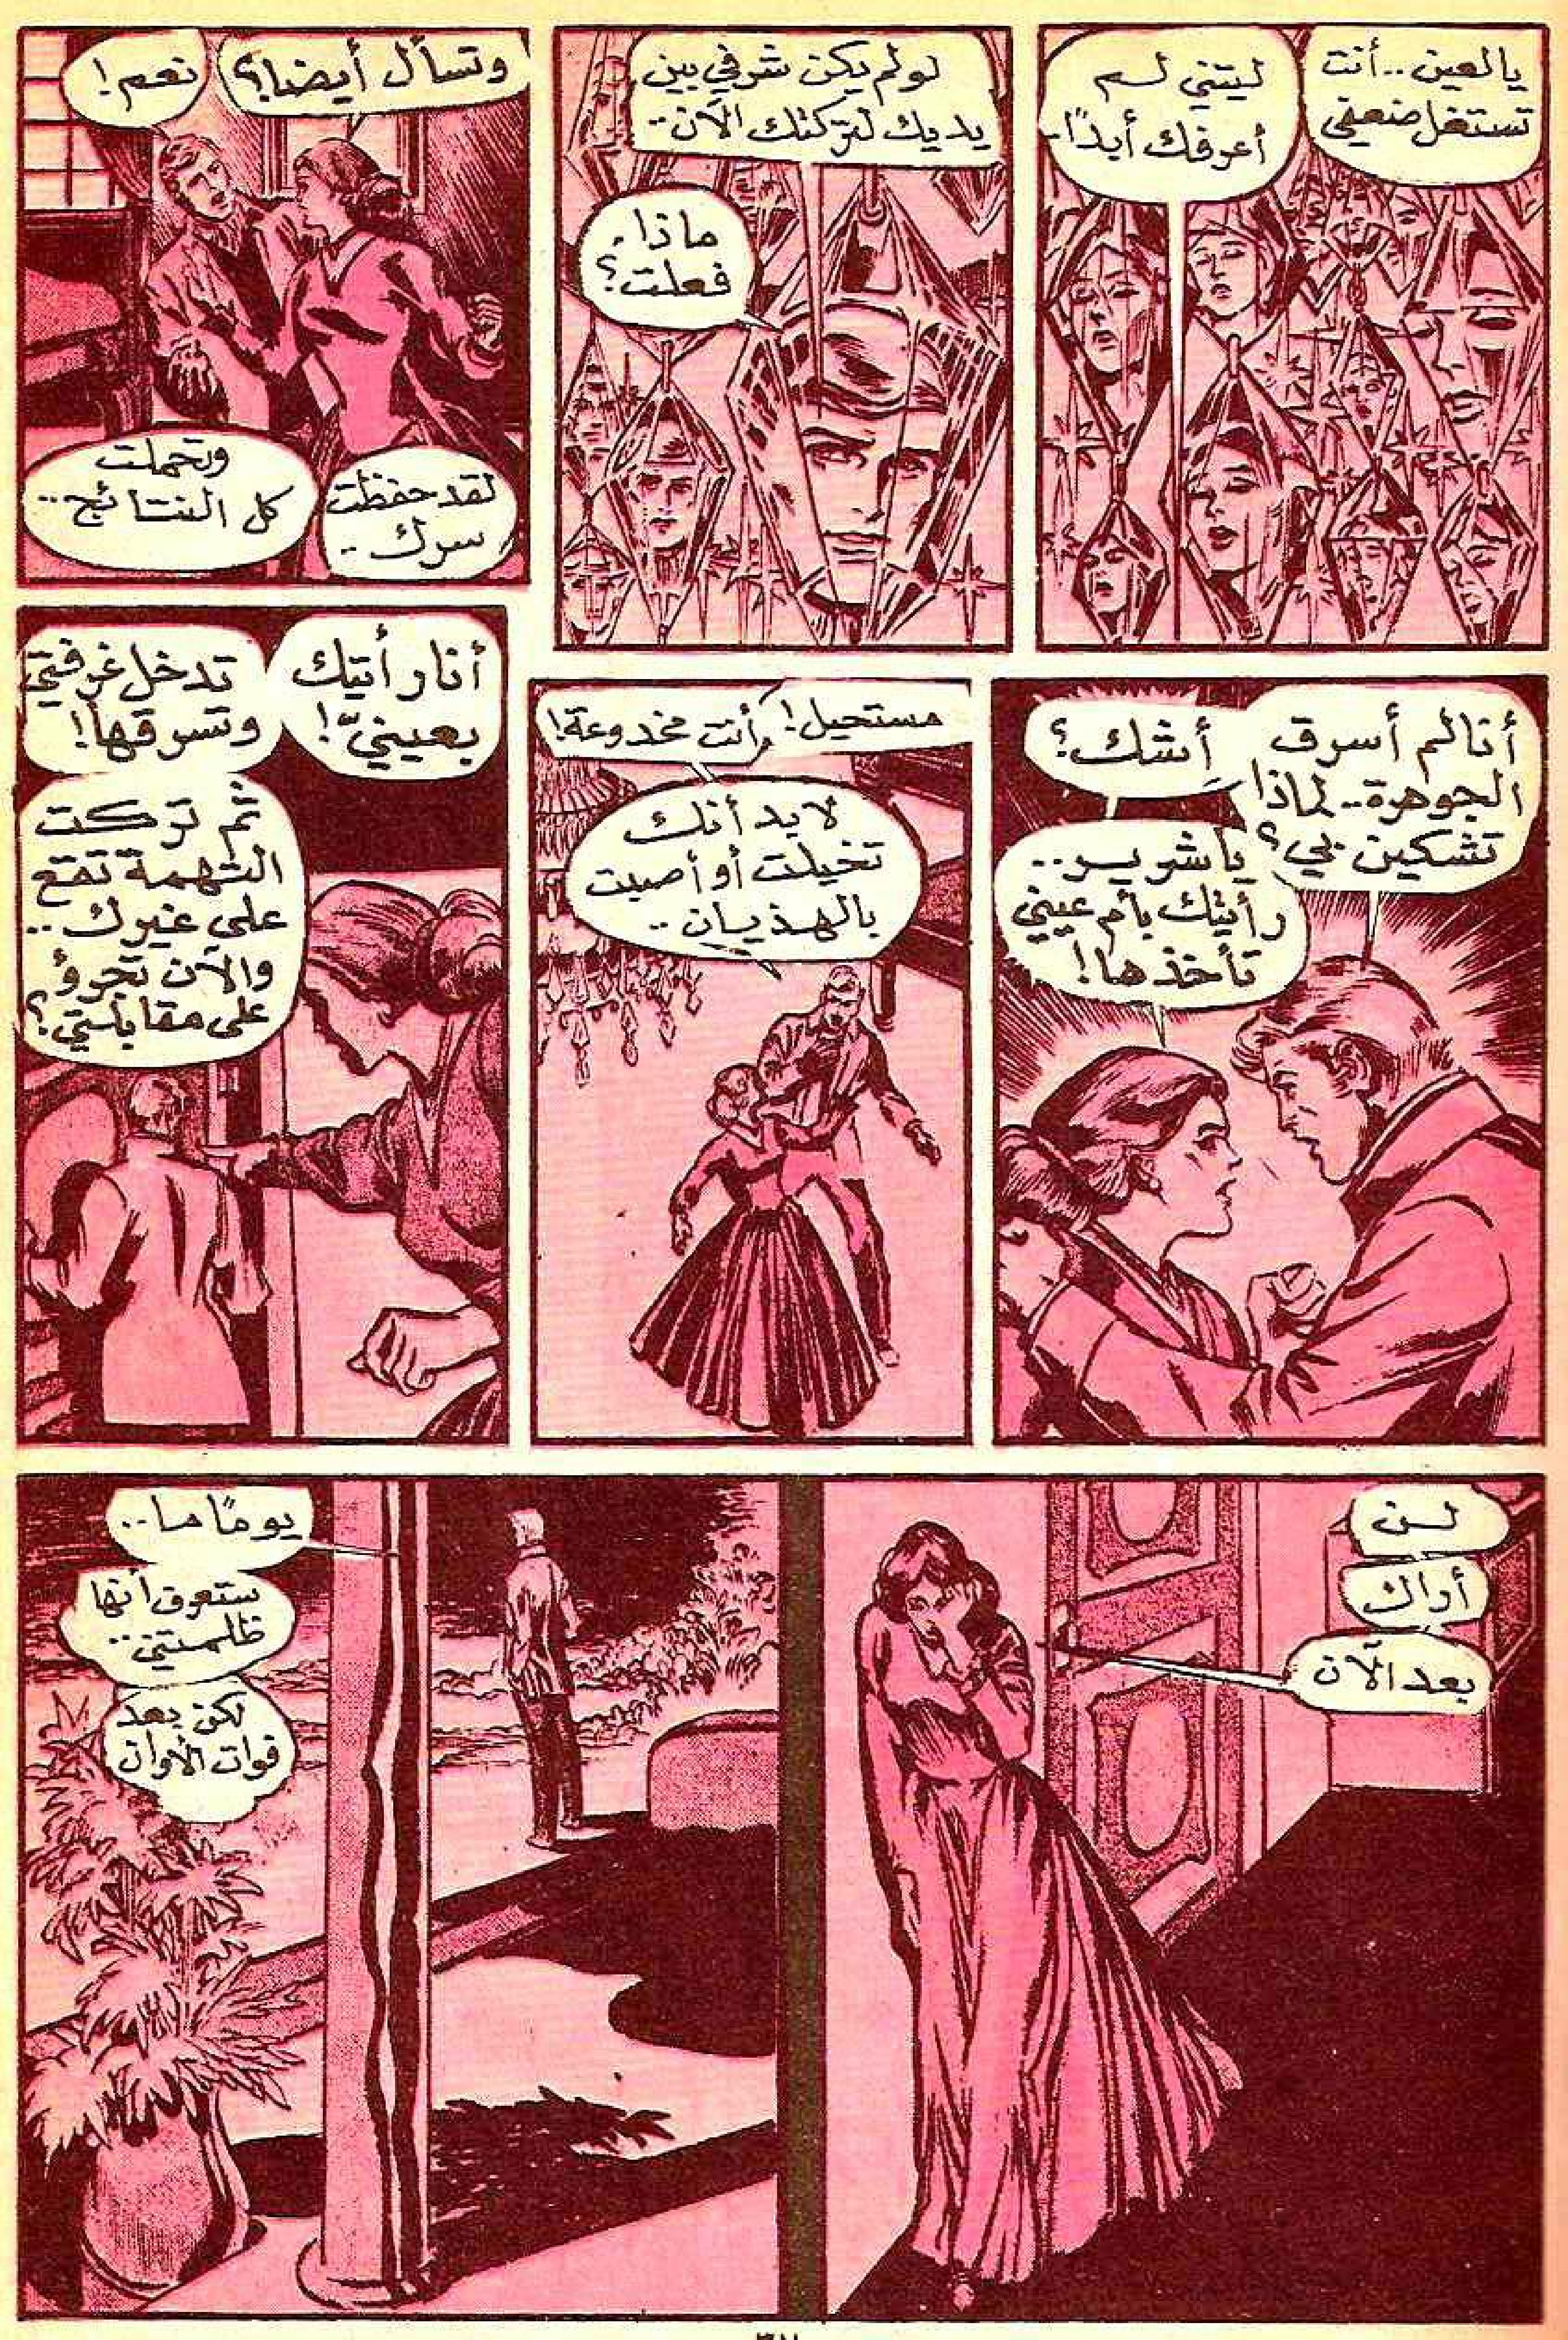 يالعين.. أنت
تستغل ضعفي
ليتني لم
أعرفك أبدًا..
لولم يكن شرفي بين
يديك لتركتك الآن..
ماذا
فعلت؟
وتسأل أيضا؟
نعم!
لقد حفظت
سرك..
وتحملت
كل النتائج..
أنا لم أسرق
الجوهرة.. لماذا
تشكين بي؟
أشك؟
يا شرير..
رأيتك بأم عيني
تأخذها!
مستحيل! أنت مخدوعة!
لابد أنك
تخيلت أو أصبت
بالهذيان..
أنا رأيتك
بعينيّ!
تدخل غرفتي
وتسرقها!
ثم تركت
التهمة تقع
على غيرك..
والآن تجرؤ
على مقابلتي؟
لن
أراك
بعد الآن
يومًا ما..
ستعرف أنها
ظلمتني..
لكن بعد
فوات الأوان